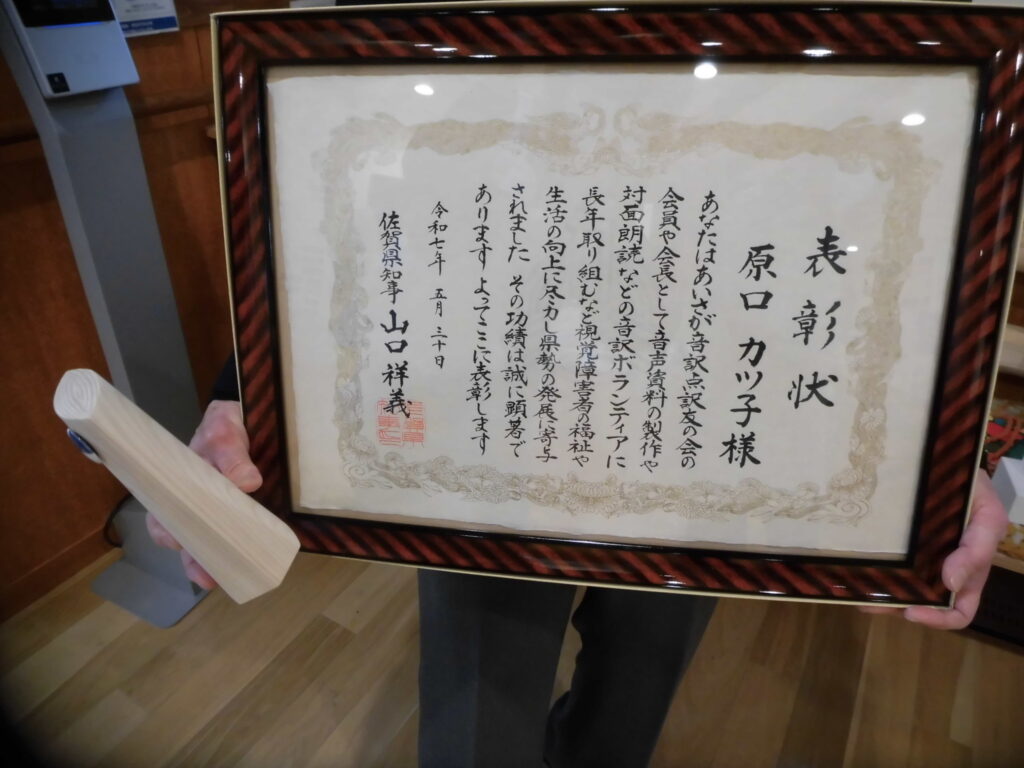 表彰状
原口 カツ子様
あなたはあいさが音訳点訳友の会の
会員や会長として音声資料の製作や
対面朗読などの音訳ボランティアに
長年取り組むなど視覚障害者の福祉や
生活の向上に尽力し県勢の発展に寄与
されました その功績は誠に顕著で
あります よってここに表彰します
令和七年 五月 三十日
佐賀県知事 山口祥義